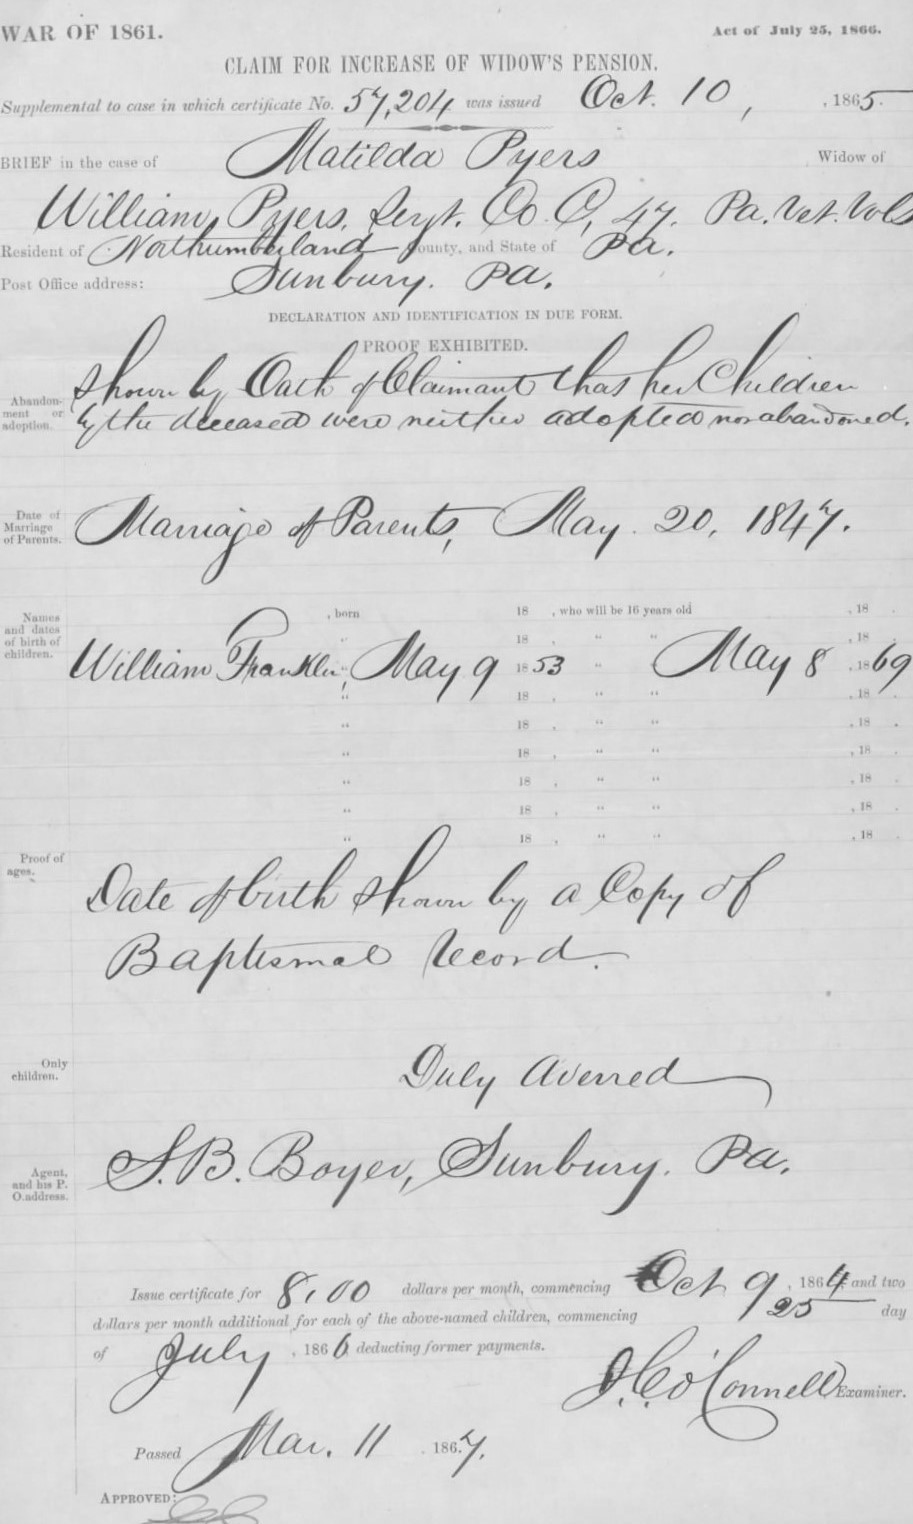 WAR OF 1861.
Act of July 25, 1866.
CLAIM FOR INCREASE OF WIDOW'S PENSION.
Supplemental to case in which certificate No. 57,204 was issued Oct. 10, , 1865.
BRIEF in the case of Matilda Pyers Widow of
William Pyers, Sergt. Co. C, 47. Pa. Vet. Vols
Resident of Northumberland County, and State of Pa.
Post Office address: Sunbury. Pa.
DECLARATION AND IDENTIFICATION IN DUE FORM.
PROOF EXHIBITED.
Abandon-
ment or
adoption.
Shown by Oath of Claimant that her Children
by the deceased were neither adopted nor abandoned.
Date of
Marriage
of Parents.
Marriage of Parents, May. 20, 1847.
Names
and dates
of birth of
children.
, born 18 , who will be 16 years old , 18 .
" 18 , " " , 18 .
William Franklin, " May 9 1853 " May 8 , 1869
" 18 , " " , 18 .
" 18 , " " , 18 .
" 18 , " " , 18 .
" 18 , " " , 18 .
" 18 , " " , 18 .
" 18 , " " , 18 .
Proof of
ages.
Date of birth shown by a Copy of
Baptismal record.
Only
children.
Duly averred
Agent,
and his P.
O. address.
S. B. Boyer, Sunbury. Pa.
Issue certificate for 8.00 dollars per month, commencing Oct 9 , 1864 and two
dollars per month additional for each of the above-named children, commencing 25 day
of July , 1866 deducting former payments.
J. C. O'Connell Examiner.
Passed Mar. 11 , 1867.
APPROVED: